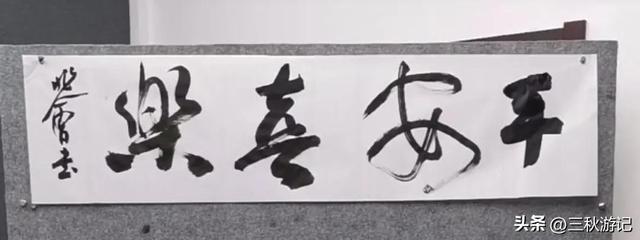 平安喜樂
头条 @三秋游记